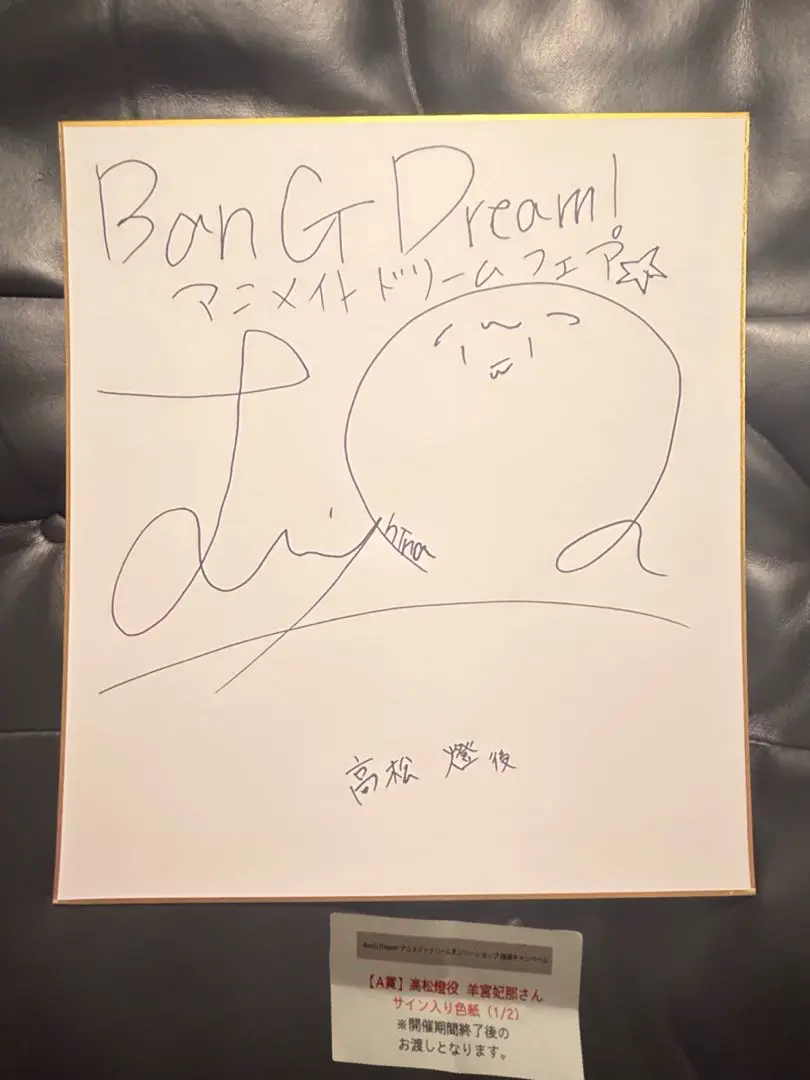 BanG Dream!
アニメイトドリームフェア☆
hina
高松 燈 役
BanG Dream! アニメイトドリームオンリーショップ 抽選キャンペーン
【A賞】高松燈役 羊宮妃那さん
サイン入り色紙（1/2）
※開催期間終了後の
お渡しとなります。